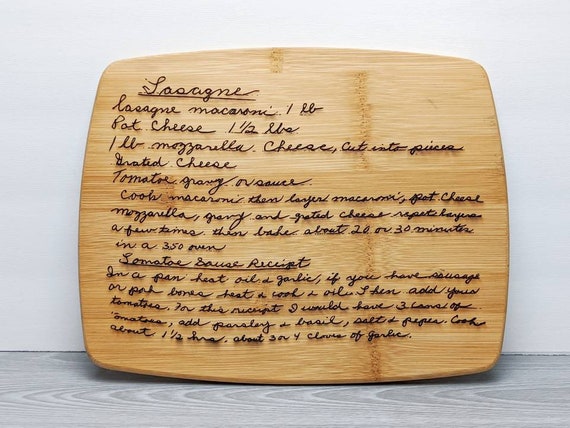 Lasagne
lasagne macaroni 1 lb
Pot Cheese 1 1/2 lbs
1 lb mozzarella Cheese, Cut into pieces
Grated Cheese
Tomatoe gravy or sauce.
Cook macaroni then layer macaroni, pot cheese
mozzarella, gravy and grated cheese repeat layers
a few times. then bake about 20 or 30 minutes
in a 350 oven
Tomatoe Sause Receipt
In a pan heat oil & garlic, if you have sausage
or pork bones heat & cook & oil. Then add your
tomatoes. For this receipt I would have 3 cans of
tomatoes, add parsley & basil, salt & peper. Cook
about 1 1/2 hrs. about 3 or 4 cloves of garlic.